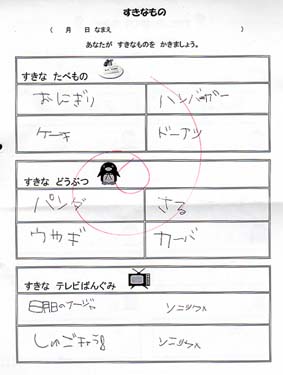 すきなもの
( 月 日 なまえ )
あなたが すきなものを かきましょう。
すきな たべもの
おにぎり ハンバーガー
ケーキ ドーナツ
すきな どうぶつ
パンダ さる
ウサギ カーバ
すきな テレビばんぐみ
ソニックX
しゅごキャラ ソニックX